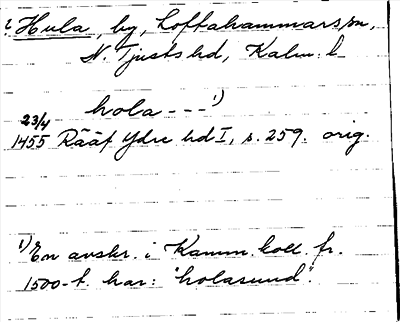 i Hula, by, Loftahammars sn,
N. Tjusts hd, Kalm. l.
hola - - - 1)
23/4
1455 Rääf Ydre hd I, s. 259. orig.
1) En avskr. i Kamm. koll. fr.
1500-t. har: "holasund".